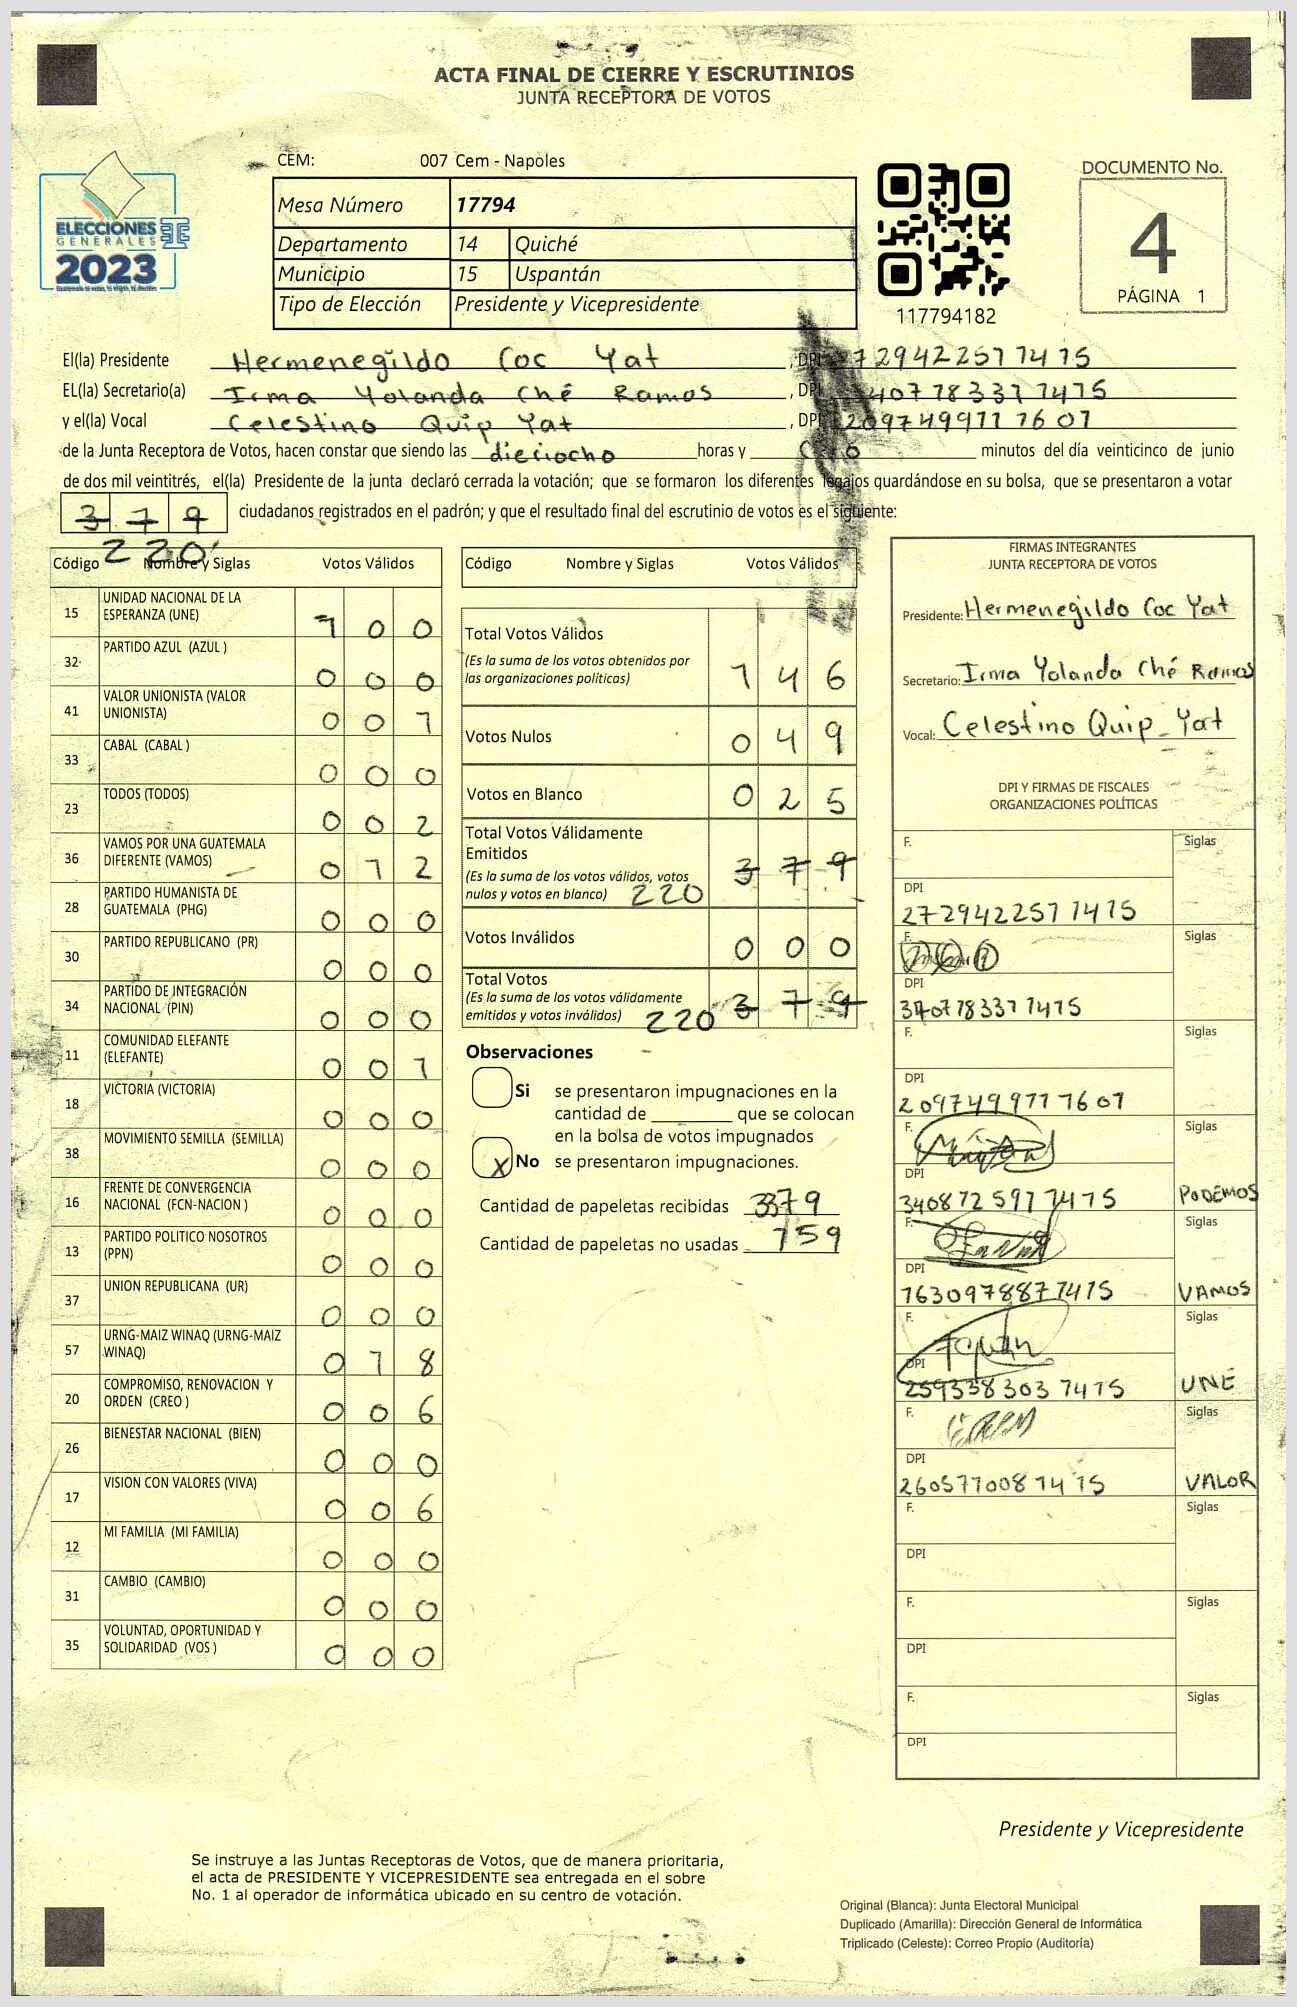 ACTA FINAL DE CIERRE Y ESCRUTINIOS
JUNTA RECEPTORA DE VOTOS
CEM: 007 Cem - Napoles
DOCUMENTO No.
4
PÁGINA 1
ELECCIONES
GENERALES
2023
Mesa Número 17794
Departamento 14 Quiché
Municipio 15 Uspantán
Tipo de Elección Presidente y Vicepresidente
117794182
El(la) Presidente Hermenegildo Coc Yat , DPI 2729422577475
EL(la) Secretario(a) Irma Yolanda Ché Ramos , DPI 3407783377475
y el(la) Vocal Celestino Quip Yat , DPI 2097499777607
de la Junta Receptora de Votos, hacen constar que siendo las dieciocho horas y minutos del día veinticinco de junio
de dos mil veintitrés, el(la) Presidente de la junta declaró cerrada la votación; que se formaron los diferentes legajos guardándose en su bolsa, que se presentaron a votar
379 ciudadanos registrados en el padrón; y que el resultado final del escrutinio de votos es el siguiente:
220
Código Nombre y Siglas Votos Válidos
15 UNIDAD NACIONAL DE LA
ESPERANZA (UNE) 1 0 0
32 PARTIDO AZUL (AZUL ) 0 0 0
41 VALOR UNIONISTA (VALOR
UNIONISTA) 0 0 1
33 CABAL (CABAL ) 0 0 0
23 TODOS (TODOS) 0 0 2
36 VAMOS POR UNA GUATEMALA
DIFERENTE (VAMOS) 0 1 2
28 PARTIDO HUMANISTA DE
GUATEMALA (PHG) 0 0 0
30 PARTIDO REPUBLICANO (PR) 0 0 0
34 PARTIDO DE INTEGRACIÓN
NACIONAL (PIN) 0 0 0
11 COMUNIDAD ELEFANTE
(ELEFANTE) 0 0 1
18 VICTORIA (VICTORIA) 0 0 0
38 MOVIMIENTO SEMILLA (SEMILLA) 0 0 0
16 FRENTE DE CONVERGENCIA
NACIONAL (FCN-NACION ) 0 0 0
13 PARTIDO POLITICO NOSOTROS
(PPN) 0 0 0
37 UNION REPUBLICANA (UR) 0 0 0
57 URNG-MAIZ WINAQ (URNG-MAIZ
WINAQ) 0 1 8
20 COMPROMISO, RENOVACION Y
ORDEN (CREO ) 0 0 6
26 BIENESTAR NACIONAL (BIEN) 0 0 0
17 VISION CON VALORES (VIVA) 0 0 6
12 MI FAMILIA (MI FAMILIA) 0 0 0
31 CAMBIO (CAMBIO) 0 0 0
35 VOLUNTAD, OPORTUNIDAD Y
SOLIDARIDAD (VOS ) 0 0 0
Código Nombre y Siglas Votos Válidos
Total Votos Válidos
(Es la suma de los votos obtenidos por
las organizaciones políticas) 1 4 6
Votos Nulos 0 4 9
Votos en Blanco 0 2 5
Total Votos Válidamente
Emitidos
(Es la suma de los votos válidos, votos
nulos y votos en blanco) 220 3 7 9
Votos Inválidos 0 0 0
Total Votos
(Es la suma de los votos válidamente
emitidos y votos inválidos) 220 3 7 9
Observaciones
Si se presentaron impugnaciones en la
cantidad de ________ que se colocan
en la bolsa de votos impugnados
X No se presentaron impugnaciones.
Cantidad de papeletas recibidas 379
Cantidad de papeletas no usadas 159
FIRMAS INTEGRANTES
JUNTA RECEPTORA DE VOTOS
Presidente: Hermenegildo Coc Yat
Secretario: Irma Yolanda Ché Ramos
Vocal: Celestino Quip Yat
DPI Y FIRMAS DE FISCALES
ORGANIZACIONES POLÍTICAS
F. Siglas
DPI
2729422577475
F. Siglas
DPI
3407783377475
F. Siglas
DPI
2097499777607
F. Siglas
DPI
3408725977475 PODEMOS
F. Siglas
DPI
1630978877475 VAMOS
F. Siglas
DPI
2593383037475 UNE
F. Siglas
DPI
2605770087475 VALOR
F. Siglas
DPI
F. Siglas
DPI
F. Siglas
DPI
Presidente y Vicepresidente
Se instruye a las Juntas Receptoras de Votos, que de manera prioritaria,
el acta de PRESIDENTE Y VICEPRESIDENTE sea entregada en el sobre
No. 1 al operador de informática ubicado en su centro de votación.
Original (Blanca): Junta Electoral Municipal
Duplicado (Amarilla): Dirección General de Informática
Triplicado (Celeste): Correo Propio (Auditoría)